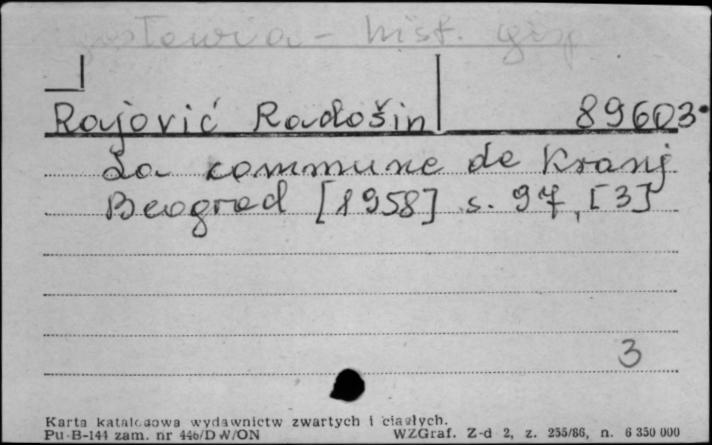 Jugosławia - hist. gosp
Rajović Radošin 89603
La commune de Kranj
Beograd [1958] s. 97, [3]
3
Karta katalogowa wydawnictw zwartych i ciągłych.
Pu-B-144 zam. nr 446/DW/ON WZGraf. Z-d 2, z. 255/86, n. 6 350 000